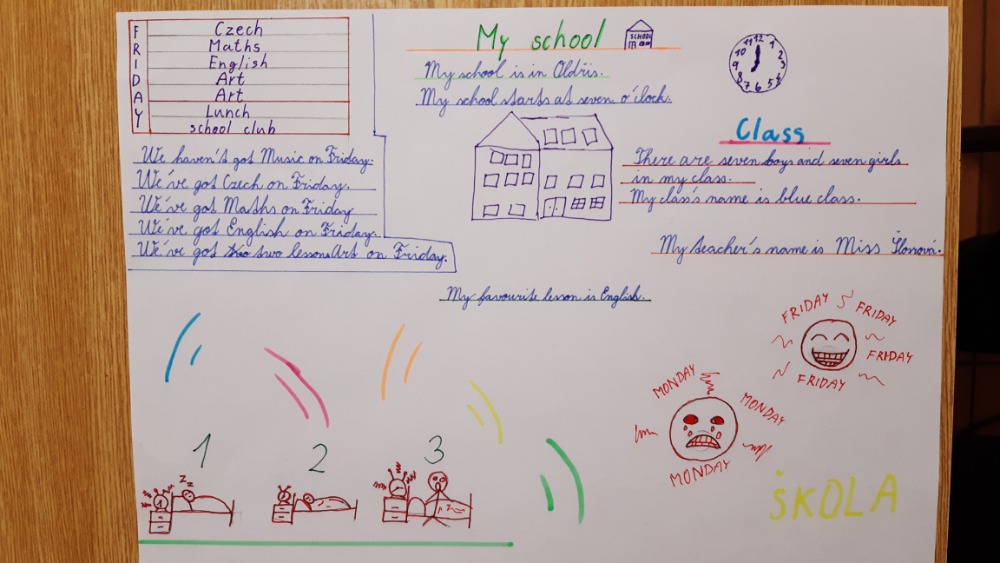 FRIDAY
Czech
Maths
English
Art
Art
Lunch
school club
We haven't got Music on Friday.
We've got Czech on Friday.
We've got Maths on Friday
We've got English on Friday.
We've got two lessons Art on Friday.
My school
SCHOOL
My school is in Oldřiš.
My school starts at seven o'clock.
12
1
2
3
4
5
6
7
8
9
10
11
Class
There are seven boys and seven girls
in my class.
My class's name is blue class.
My teacher's name is Miss Šlonová.
My favourite lesson is English.
1
2
3
zz
FRIDAY
FRIDAY
FRIDAY
FRIDAY
MONDAY
MONDAY
MONDAY
ŠKOLA